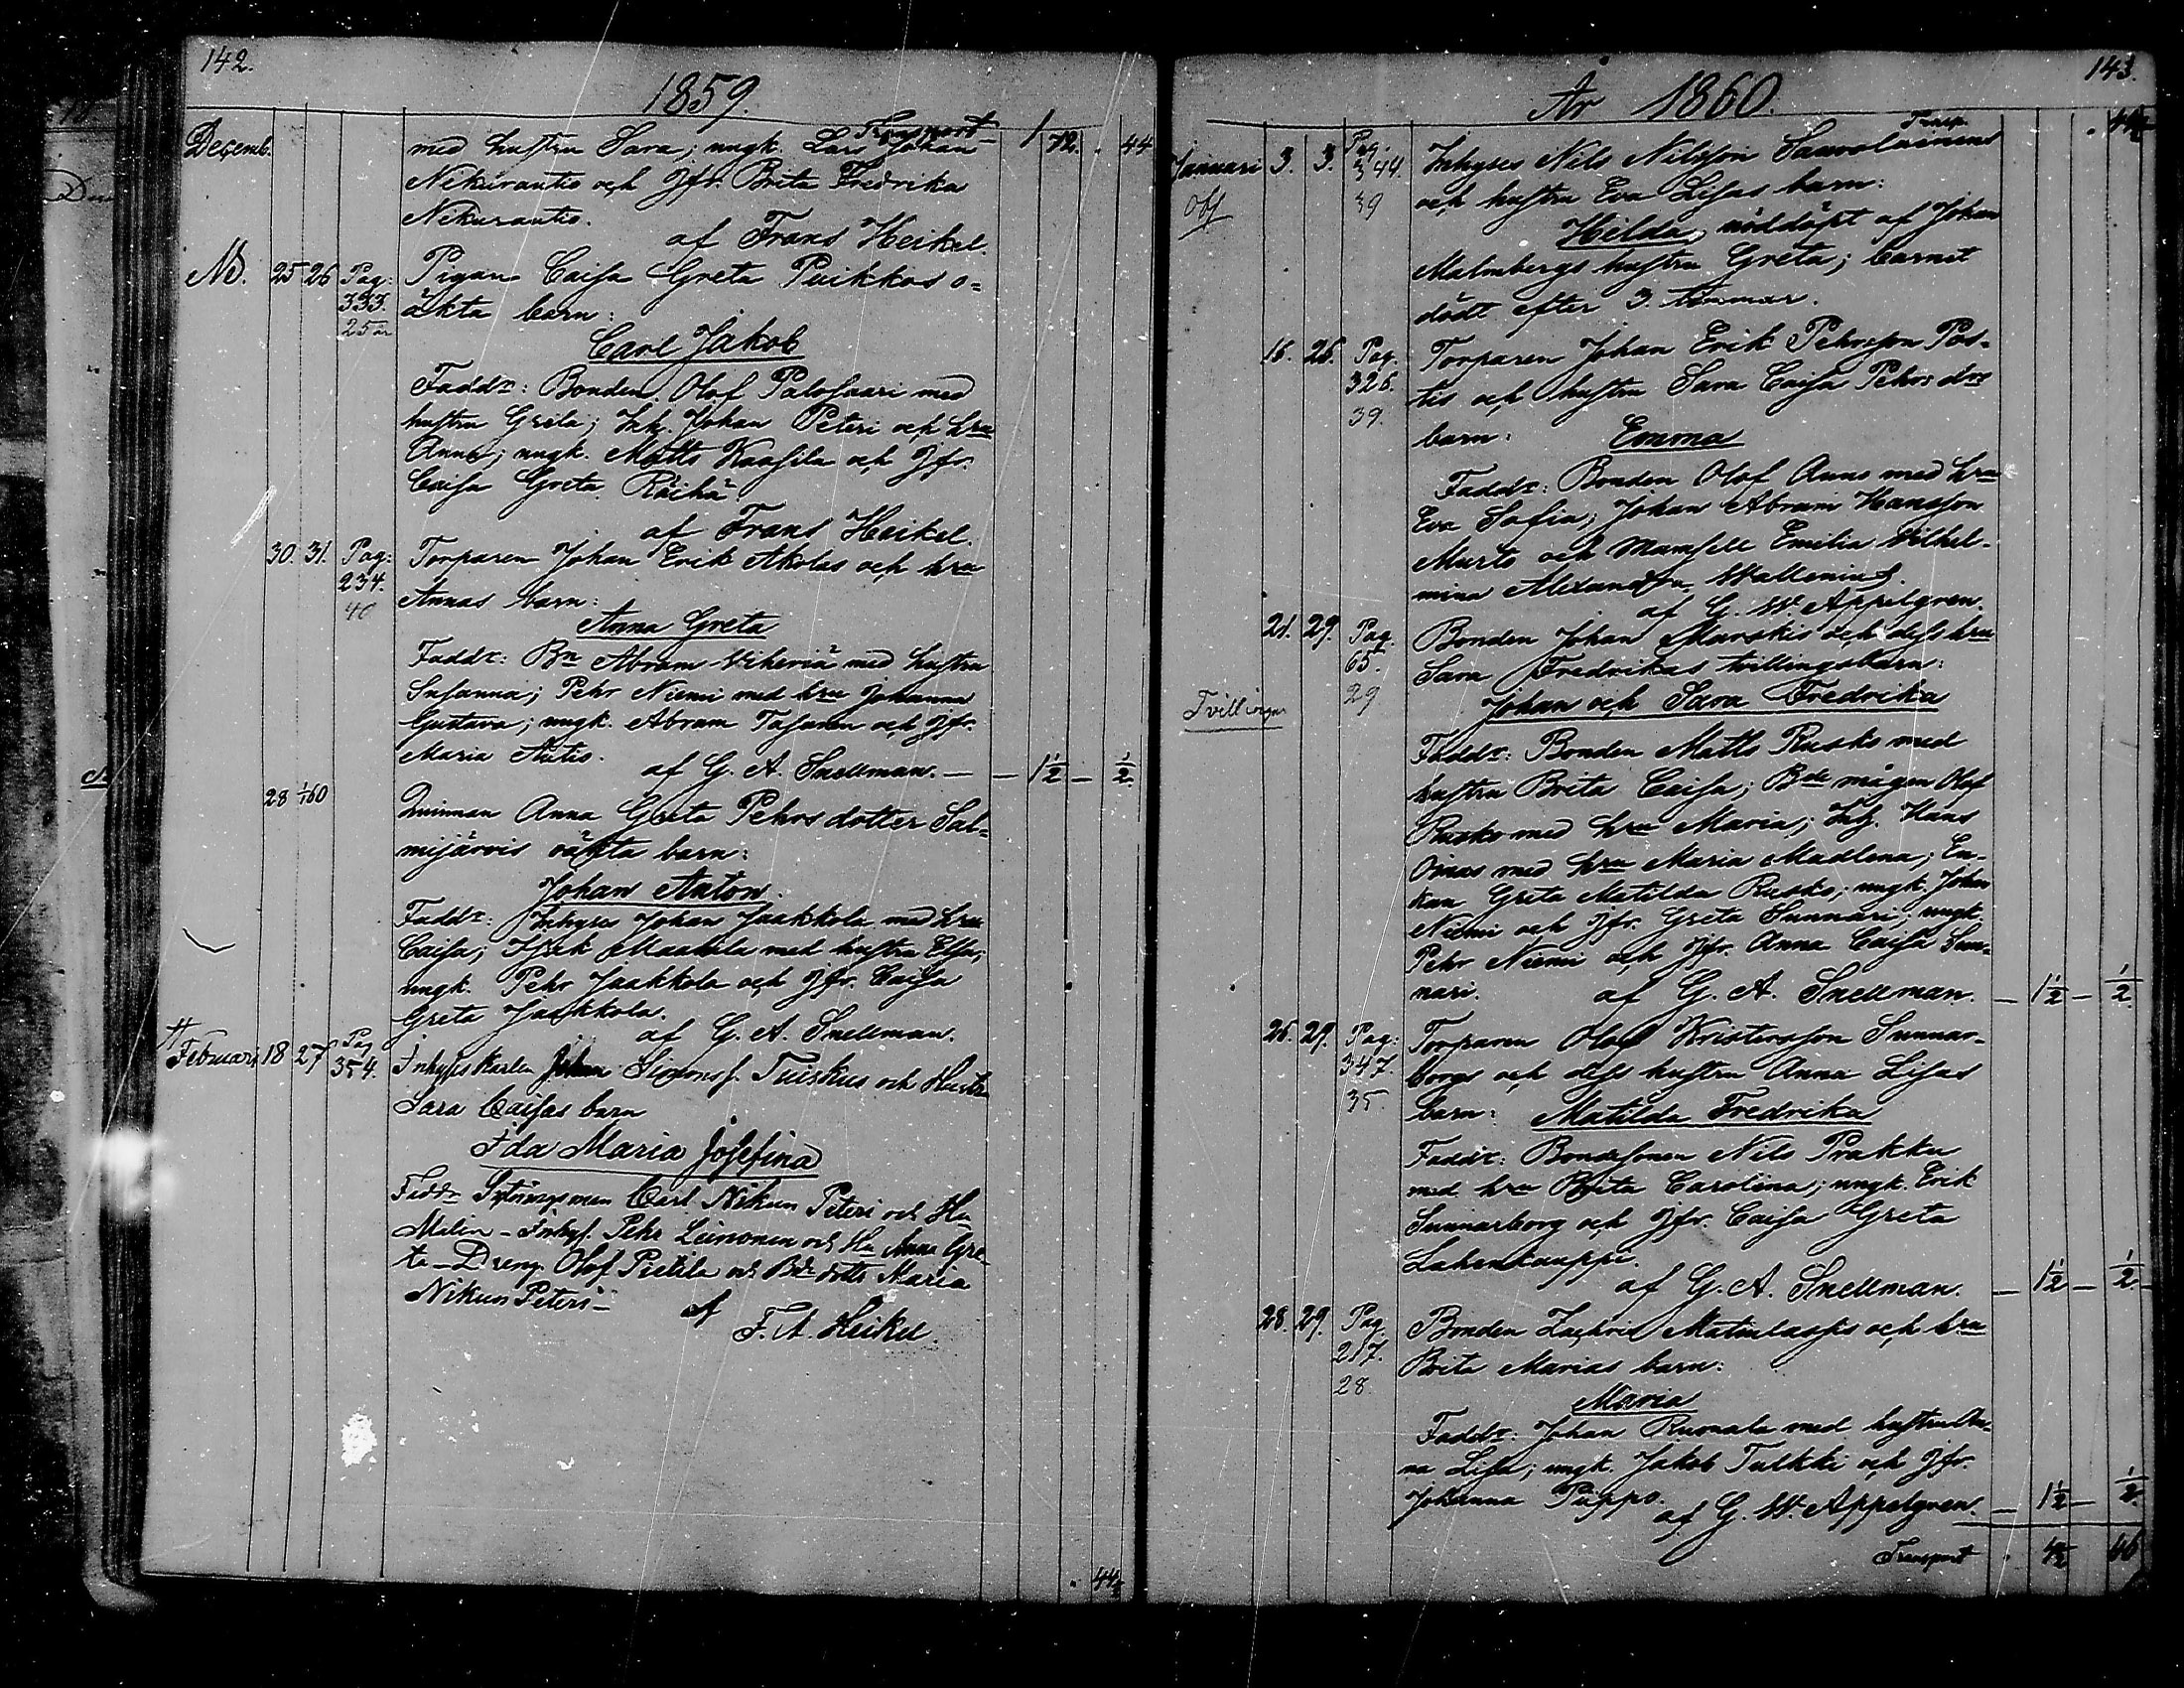 142.
1859.
Transport 1 72. 44
Decemb. med hustru Sara; ungk. Lars Johan
Nikurautio och Jfr. Brita Fredrika
Nekurautio.
af Frans Heikel.
25 26 Pag: 333. 25 år Pigan Caisa Greta Puikkos o=
äkta barn:
Carl Jakob
Faddr: Bonden Olof Palosaari med
hustru Greta; Inh. Johan Peteri och hru
Anna; ungk. Matts Kaasila och Jfr.
Caisa Greta Räihä
af Frans Heikel.
30. 31. Pag: 234. 40 Torparen Johan Erik Akolas och hru
Annas barn:
Anna Greta
Faddr: Bn Abram Viheriä med hustru
Susanna; Pehr Niemi med hru Johanna
Gustava; ungk. Abram Tasanen och Jfr.
Maria Autio.
af G. A. Snellman. — — 1½ — ½.
28 1/1 60 Quinnan Anna Greta Pehrsdotter Sal=
mijärvis oäkta barn:
Johan Anton.
Faddr: Inhyses Johan Jaakkola med hru
Caisa; Isak Maakila med hustru Elsa;
ungk. Pehr Jaakkola och Jfr. Caisa
Greta Jaakkola.
af G. A. Snellman.
Februari 18 27 Pag 354. Inhyseskarlen Johan Simonss. Tuiskus och Hustr
Sara Caisas barn
Ida Maria Josefina
Faddr Carl Nikun Peteri och Hu
Malin - Inhys. Pehr Leinonen och Hu Anna Gre
ta - Dreng Olof Pietila och Bde dottr Maria
Nikun Peteri -
af
F. A. Heikel.
44½
143.
År 1860.
Transp. 44½
Januari 3. 3. Pag. 344. 39 Inhyses Nils Nilsson Sauvolainens
och hustru Eva Lisas barn:
Hilda, nöddöpt af Johan
Malmbergs hustru Greta; barnet
dödt efter 3. timmar.
16. 26. Pag. 326. 39. Torparen Johan Erik Pehrsson Pos-
tis och hustru Sara Caisa Pehrsdrs
barn: Emma
Faddr: Bonden Olof Auno med hru
Eva Sofia; Johan Abram Hansson
Murto och Mamsell Emilia Vilhel-
mina Alexandra Wallenius.
af G. W. Appelgren.
21. 29. Pag. 65. 29 Bonden Johan Marskis och dess hru
Sara Fredrikas tvillingsbarn:
Tvillingar
Johan och Sara Fredrika
Faddr: Bonden Matts Rusko med
hustru Brita Caisa; Bde mågen Olof
Rusko med hru Maria; Inh. Hans
Oinas med hru Maria Madlena; En-
kan Greta Matilda Rusko; ungk. Johan
Niemi och Jfr. Greta Sunnari; ungk.
Pehr Niemi och Jfr. Anna Caisa Sun-
nari.
af G. A. Snellman. — 1½ — ½.
26. 29. Pag: 347. 35. Torparen Olof Kristersson Sunnar-
borgs och dess hustru Anna Lisas
barn: Matilda Fredrika
Faddr: Bondesonen Nils Prakku
med hru Brita Carolina; ungk. Erik
Sunnarborg och Jfr. Caisa Greta
Lahenkauppi.
af G. A. Snellman. — 1½ — ½.
28. 29. Pag. 217. 28. Bonden Zachris Matinlassis och hru
Brita Marias barn:
Maria
Faddr: Johan Ruonala med hustru An-
na Lisa; ungk. Jakob Tulkki och Jfr.
Johanna Puppo.
af G. W. Appelgren. — 1½ — ½.
Transport 4½ 46